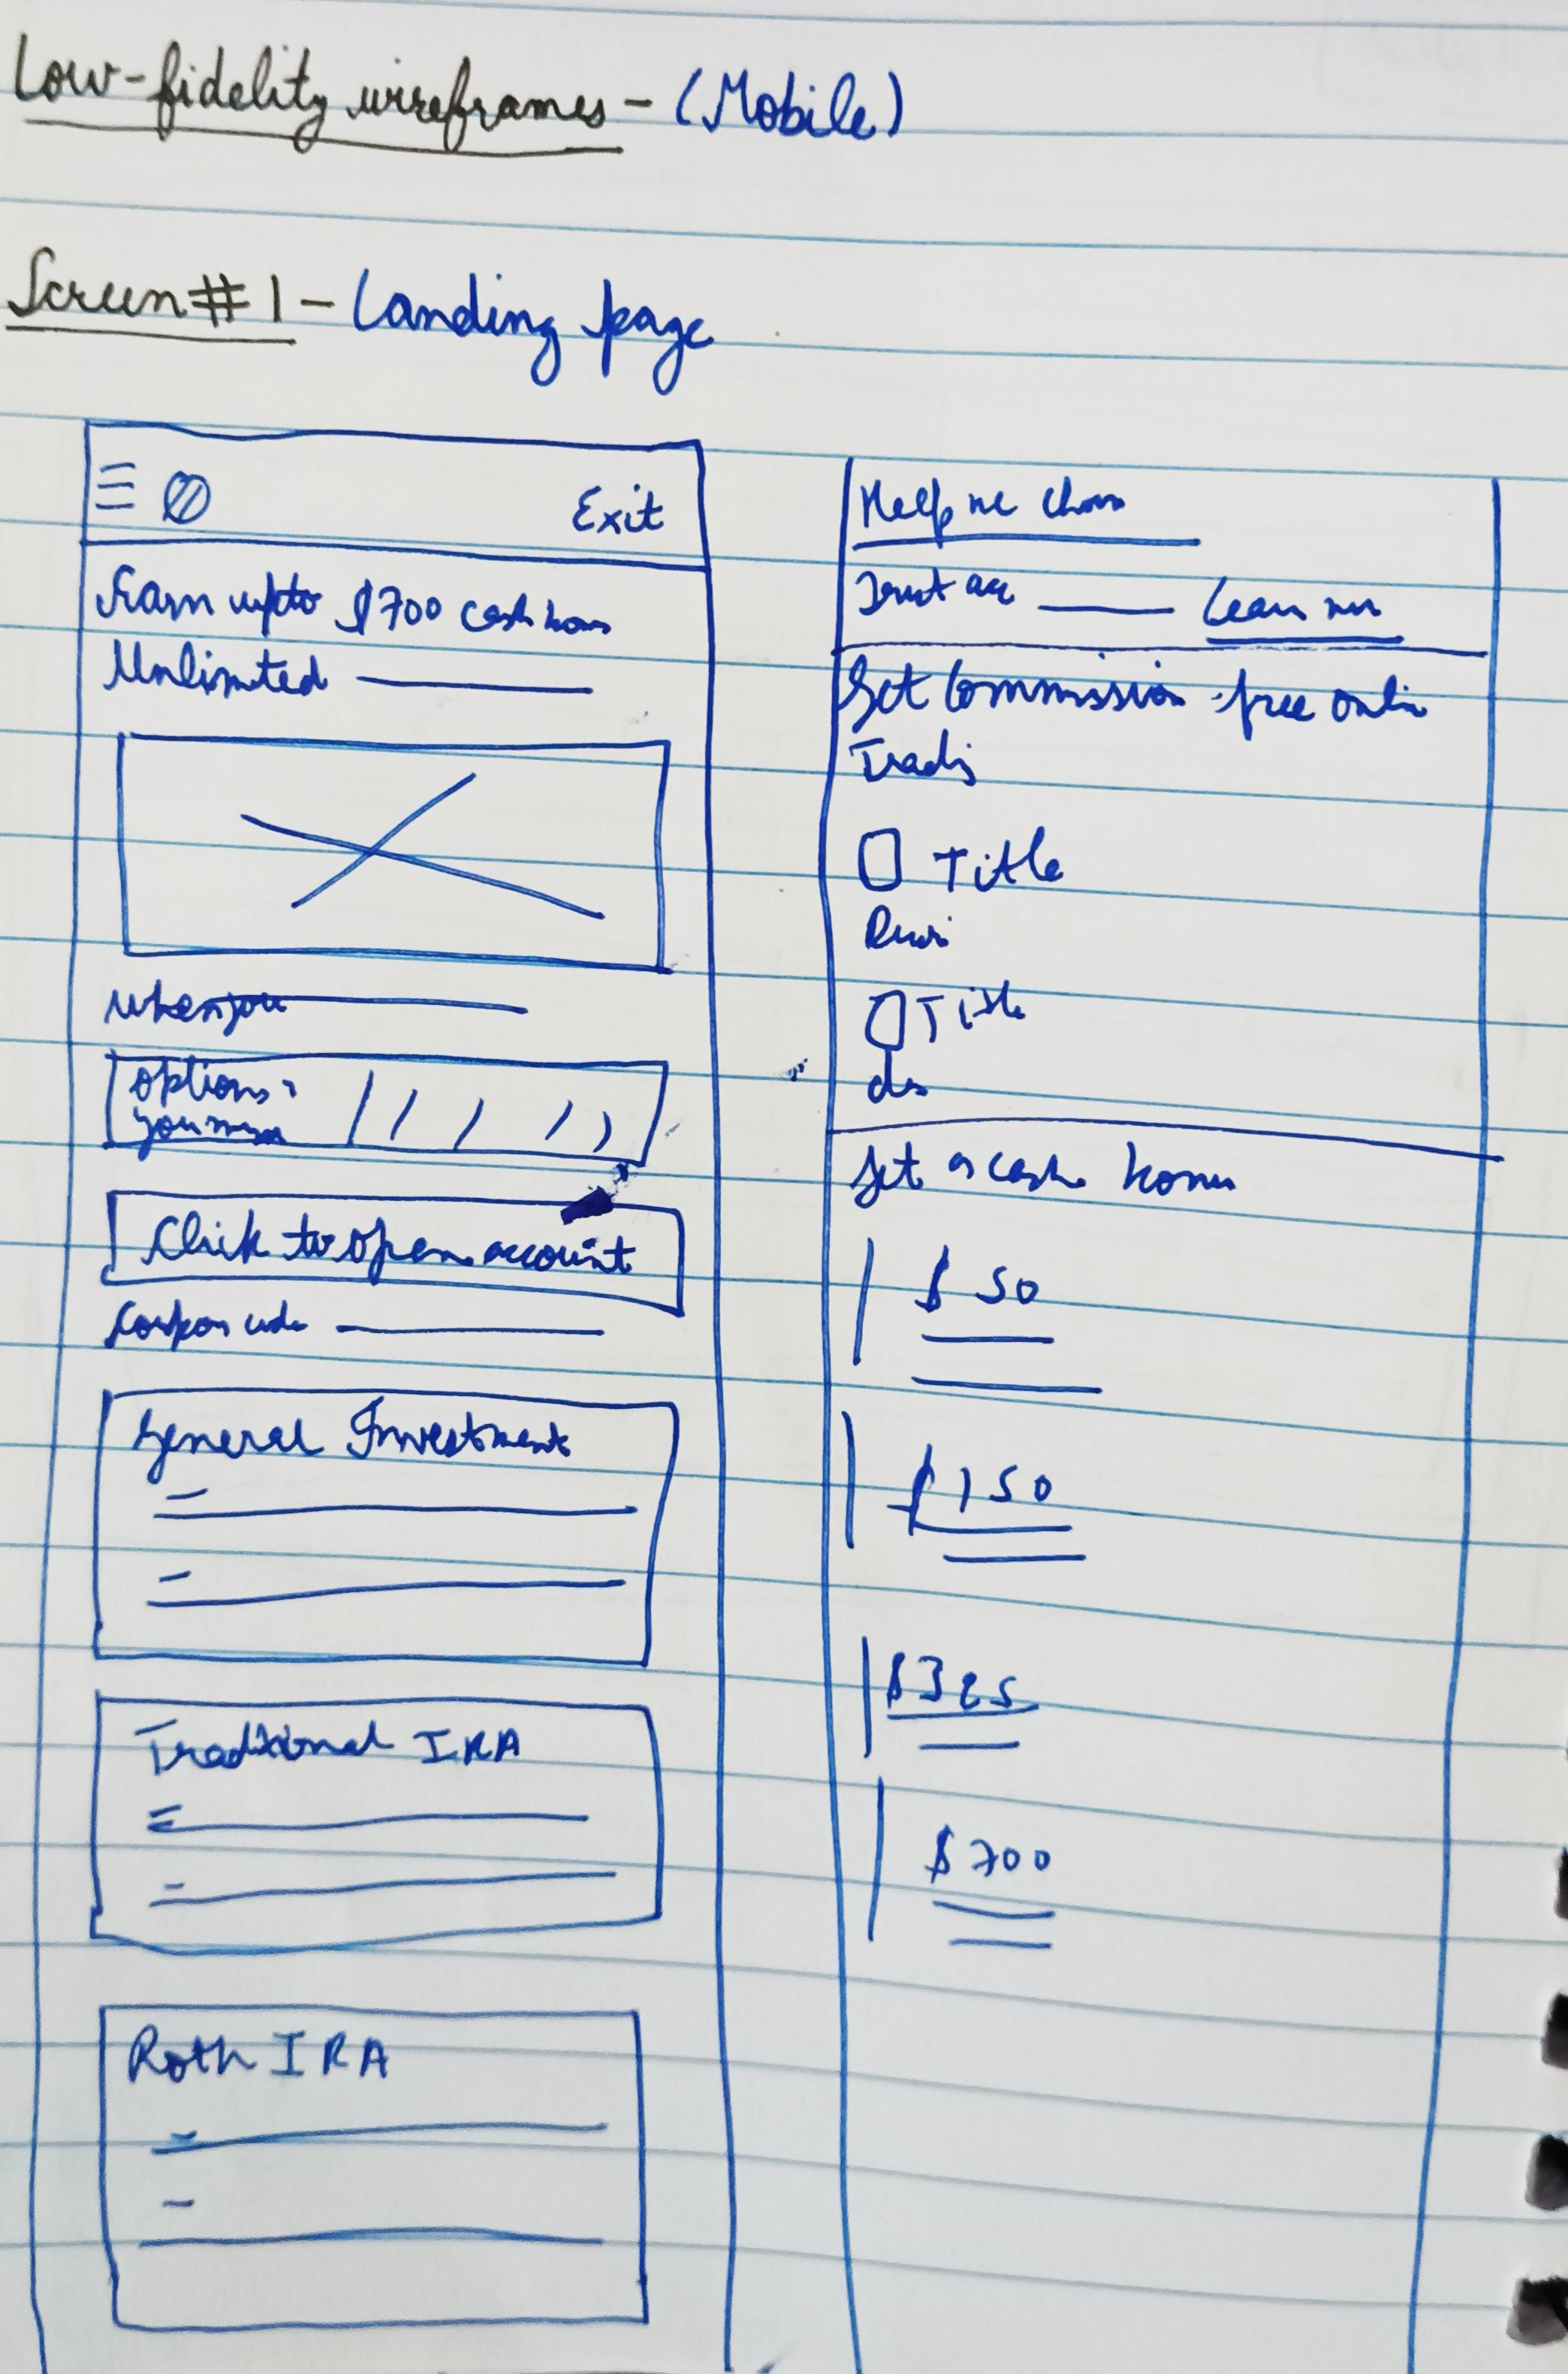 Low-fidelity wireframes - (Mobile)
Screen #1 - Landing page
Exit
Earn upto $700 cash
Unlimited
when you
options
Click to open account
code
General Investment
Traditional IRA
Roth IRA
Help me
Learn
Get Commission-free
Title
Title
Get a cash
$50
$150
$325
$700